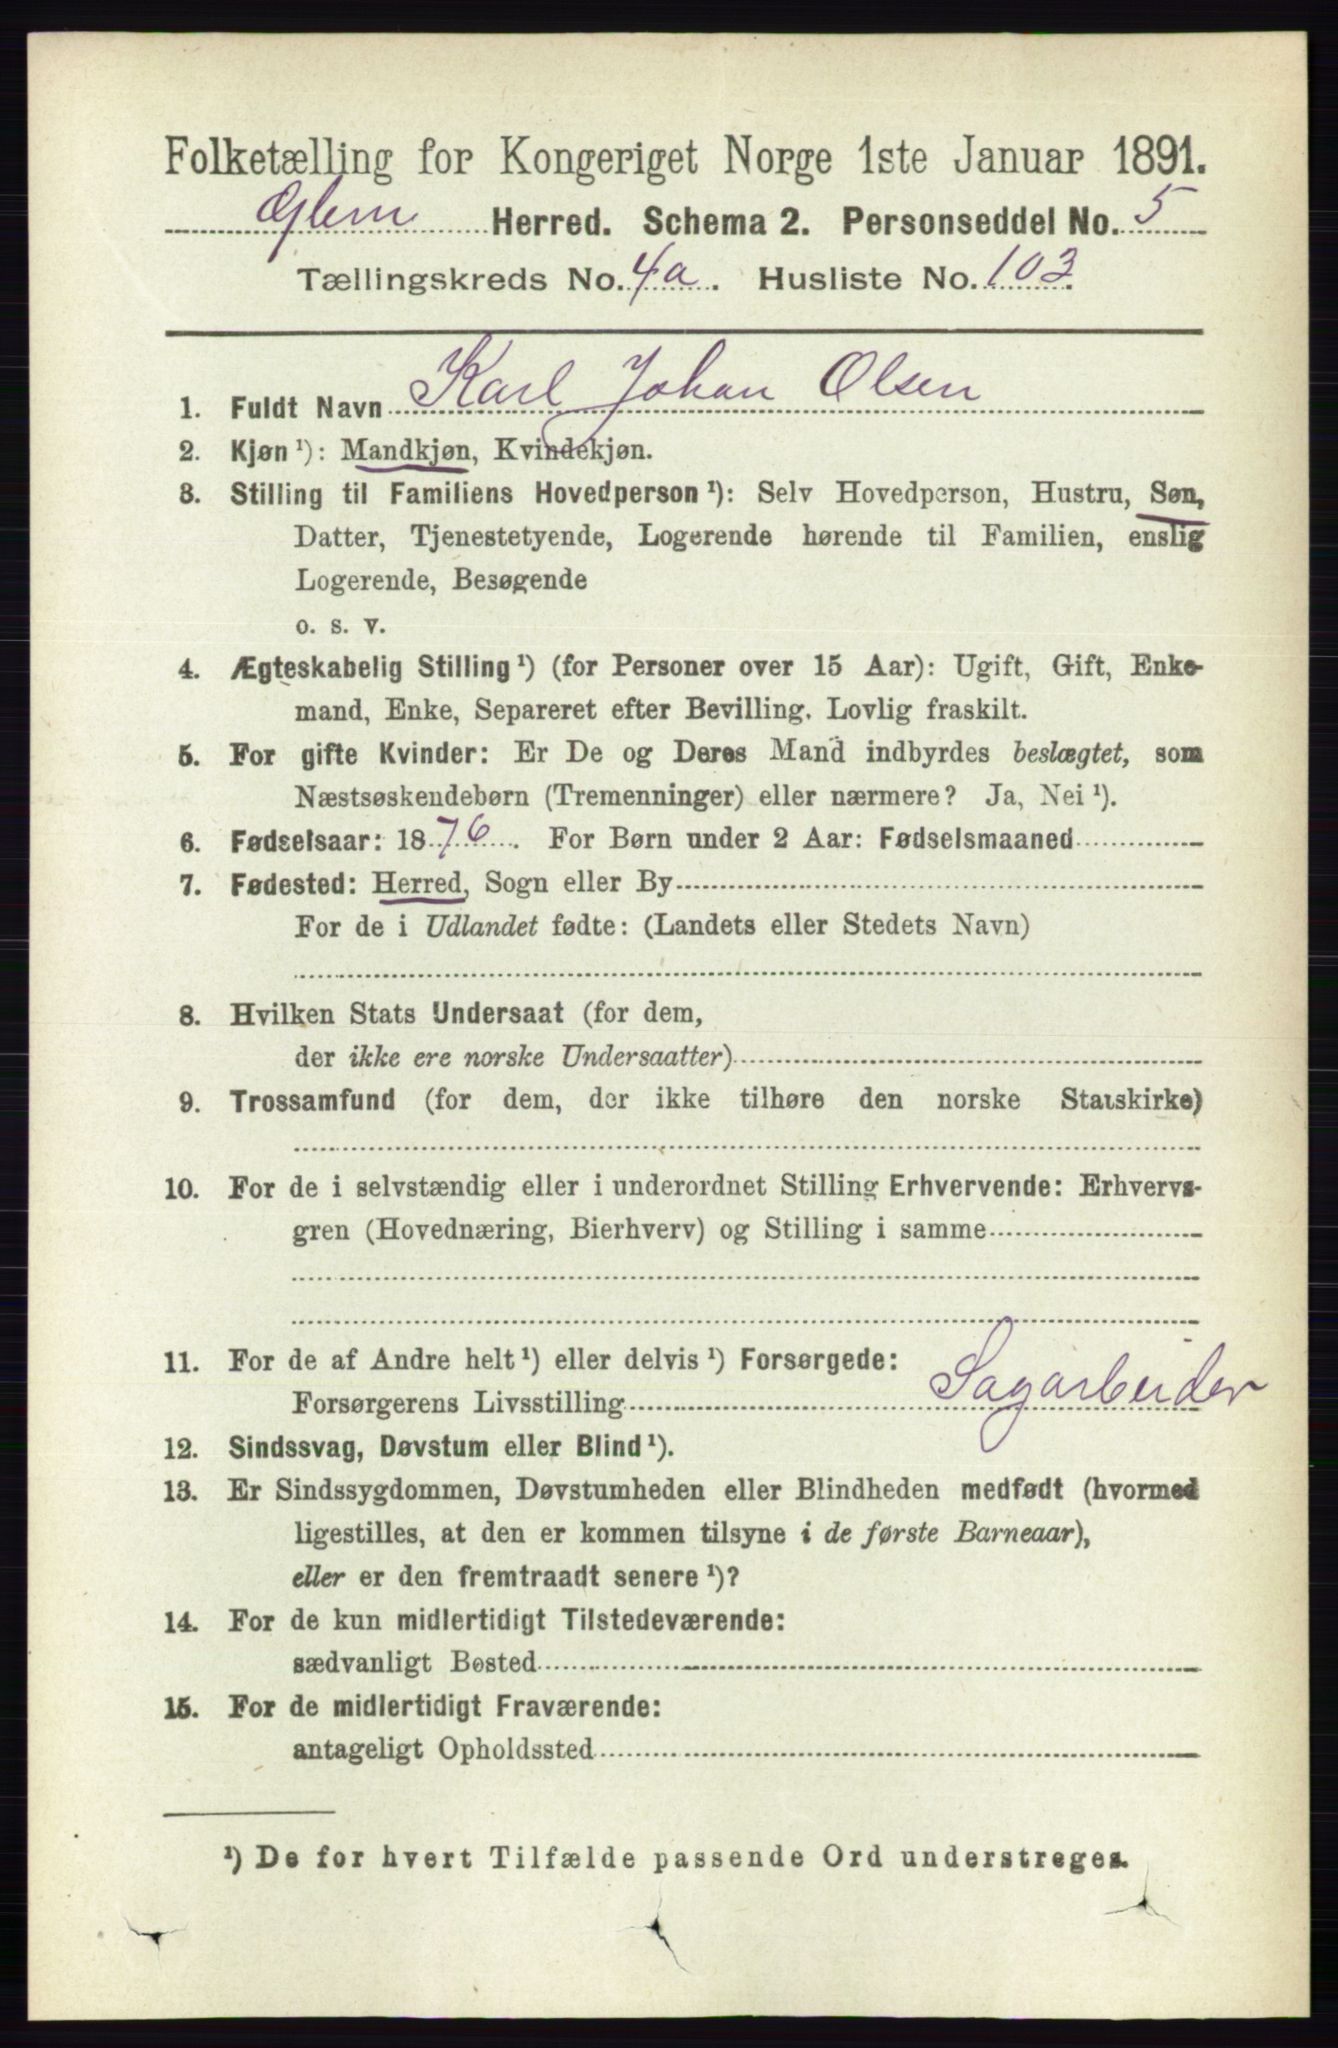 Folketælling for Kongeriget Norge 1ste Januar 1891.
Glem Herred. Schema 2. Personseddel No. 5
Tællingskreds No. 4a. Husliste No. 103.
1. Fuldt Navn Karl Johan Olsen
2. Kjøn ¹): Mandkjøn, Kvindekjøn.
3. Stilling til Familiens Hovedperson ¹): Selv Hovedperson, Hustru, Søn,
Datter, Tjenestetyende, Logerende hørende til Familien, enslig
Logerende, Besøgende
o. s. v.
4. Ægteskabelig Stilling ¹) (for Personer over 15 Aar): Ugift, Gift, Enke-
mand, Enke, Separeret efter Bevilling. Lovlig fraskilt.
5. For gifte Kvinder: Er De og Deres Mand indbyrdes beslægtet, som
Næstsøskendebørn (Tremenninger) eller nærmere? Ja, Nei ¹).
6. Fødselsaar: 1876. For Børn under 2 Aar: Fødselsmaaned
7. Fødested: Herred, Sogn eller By
For de i Udlandet fødte: (Landets eller Stedets Navn)
8. Hvilken Stats Undersaat (for dem,
der ikke ere norske Undersaatter)
9. Trossamfund (for dem, der ikke tilhøre den norske Statskirke)
10. For de i selvstændig eller i underordnet Stilling Erhvervende: Erhvervs-
gren (Hovednæring, Bierhverv) og Stilling i samme
11. For de af Andre helt ¹) eller delvis ¹) Forsørgede:
Forsørgerens Livsstilling Sagarbeider
12. Sindssvag, Døvstum eller Blind ¹).
13. Er Sindssygdommen, Døvstumheden eller Blindheden medfødt (hvormed
ligestilles, at den er kommen tilsyne i de første Barneaar),
eller er den fremtraadt senere ¹)?
14. For de kun midlertidigt Tilstedeværende:
sædvanligt Bosted
15. For de midlertidigt Fraværende:
antageligt Opholdssted
¹) De for hvert Tilfælde passende Ord understreges.